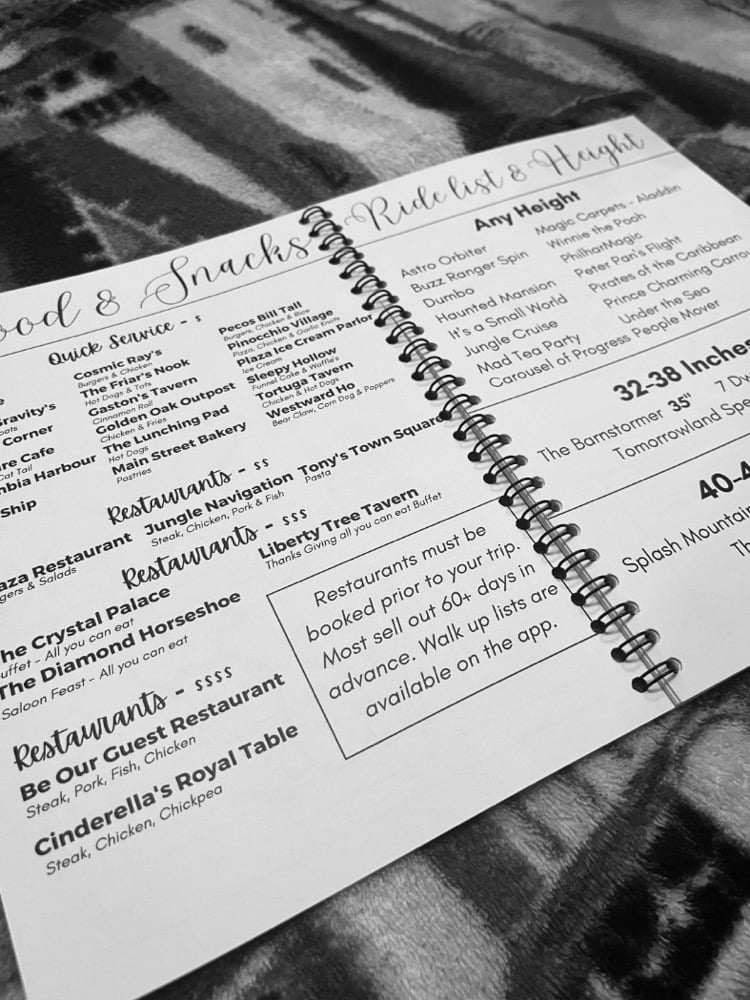 ood & Snacks
Quick Service - $
e
Gravity's
oats
Corner
re Cafe
Cat Tail
mbia Harbour
Ship
Cosmic Ray's
Burgers & Chicken
The Friar's Nook
Hot Dogs & Tots
Gaston's Tavern
Cinnamon Roll
Golden Oak Outpost
Chicken & Fries
The Lunching Pad
Hot Dogs
Main Street Bakery
Pastries
Pecos Bill Tall
Burgers, Chicken & Rice
Pinocchio Village
Pizza, Chicken & Garlic Knots
Plaza Ice Cream Parlor
Ice Cream
Sleepy Hollow
Funnel Cake & Waffle's
Tortuga Tavern
Chicken & Hot Dogs
Westward Ho
Bear Claw, Corn Dog & Poppers
Restaurants - $$
aza Restaurant
gers & Salads
Jungle Navigation
Steak, Chicken, Pork & Fish
Tony's Town Square
Pasta
Restaurants - $$$
he Crystal Palace
uffet - All you can eat
The Diamond Horseshoe
Saloon Feast - All you can eat
Liberty Tree Tavern
Thanks Giving all you can eat Buffet
Restaurants - $$$$
Be Our Guest Restaurant
Steak, Pork, Fish, Chicken
Cinderella's Royal Table
Steak, Chicken, Chickpea
Restaurants must be
booked prior to your trip.
Most sell out 60+ days in
advance. Walk up lists are
available on the app.
Ride list & Height
Any Height
Astro Orbiter
Buzz Ranger Spin
Dumbo
Haunted Mansion
It's a Small World
Jungle Cruise
Mad Tea Party
Carousel of Progress
Magic Carpets - Aladdin
Winnie the Pooh
PhilharMagic
Peter Pan's Flight
Pirates of the Caribbean
Prince Charming Carrou
Under the Sea
People Mover
32-38 Inches
The Barnstormer 35" 7 Dw
Tomorrowland Spe
40-4
Splash Mountain
Th